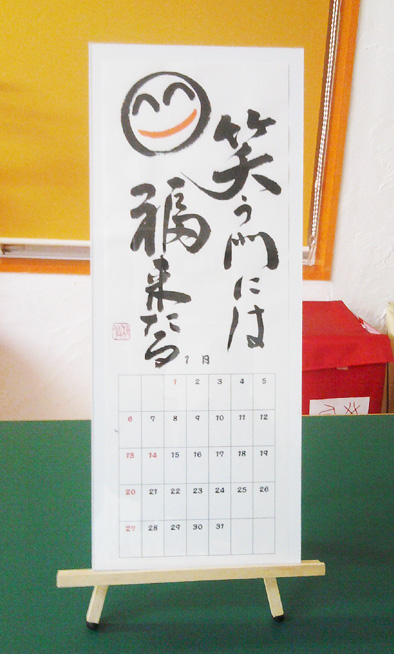 笑う門には
福来たる
1月
1 2 3 4 5
6 7 8 9 10 11 12
13 14 15 16 17 18 19
20 21 22 23 24 25 26
27 28 29 30 31